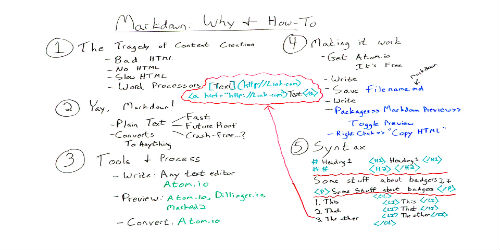 Markdown: Why & How-To
1 The Tragedy of Content Creation
- Bad HTML
- No HTML
- Slow HTML
- Word Processors
[Text](http://Link.com)
<a href="http://Link.com">Text</a>
2 Yay, Markdown!
- Plain Text
- Converts
To Anything
- Fast
- Future Proof
- Crash-Free...?
3 Tools & Process
- Write: Any text editor
Atom.io
- Preview: Atom.io, Dillinger.io
- Convert: Atom.io
4 Making it work
- Get Atom.io
It's Free
- Write
- Save filename.md
- Write
- Packages > Markdown Preview >
Toggle Preview
- Right Click > "Copy HTML"
5 Syntax
# Heading 1 <H1> Heading 1 </H1>
## <H2> </H2>
Some stuff about badgers
<P> Some stuff about badgers </P>
1. This <li> This </li>
2. That <li> That </li>
3. The other <li> The other </li>
</ol>